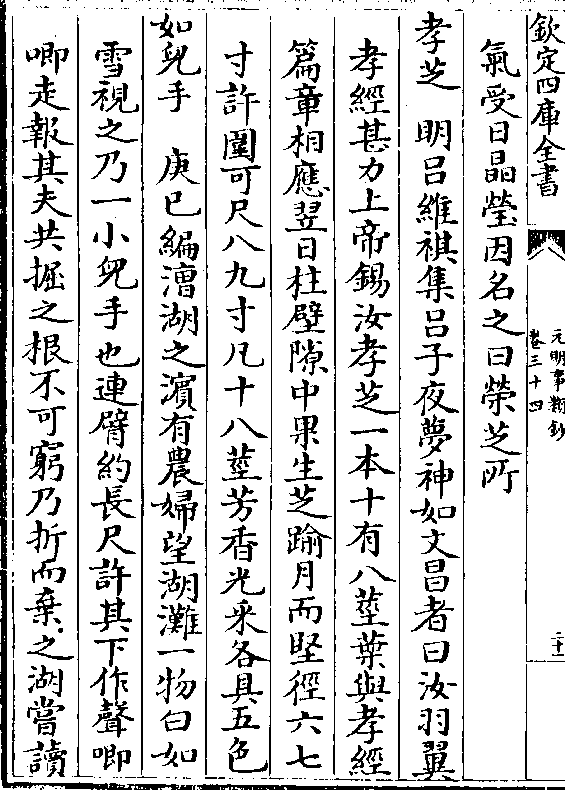 欽定四庫全書
元明事類鈔
卷三十四
二十一
氣受日晶瑩因名之曰榮芝所
孝芝　明吕維祺集吕子夜夢神如文昌者曰汝羽翼
孝經甚力上帝錫汝孝芝一本十有八莖葉與孝經
篇章相應翌日柱壁隙中果生芝踰月而堅徑六七
寸許圍可尺八九寸凡十八莖芳香光采各具五色
如兒手　庚巳編漕湖之濱有農婦望湖灘一物白如
雪視之乃一小兒手也連臂約長尺許其下作聲唧
唧走報其夫共掘之根不可窮乃折而棄之湖嘗讀